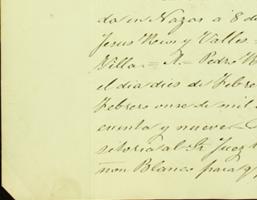 da en Nazas á 8 de
Jesus Rios y Valles =
Villa = A = Pedro
el dia dies de Febre
Febrero onse de mil
enta y nueve
al Sr. Juez
ñon Blanco para q